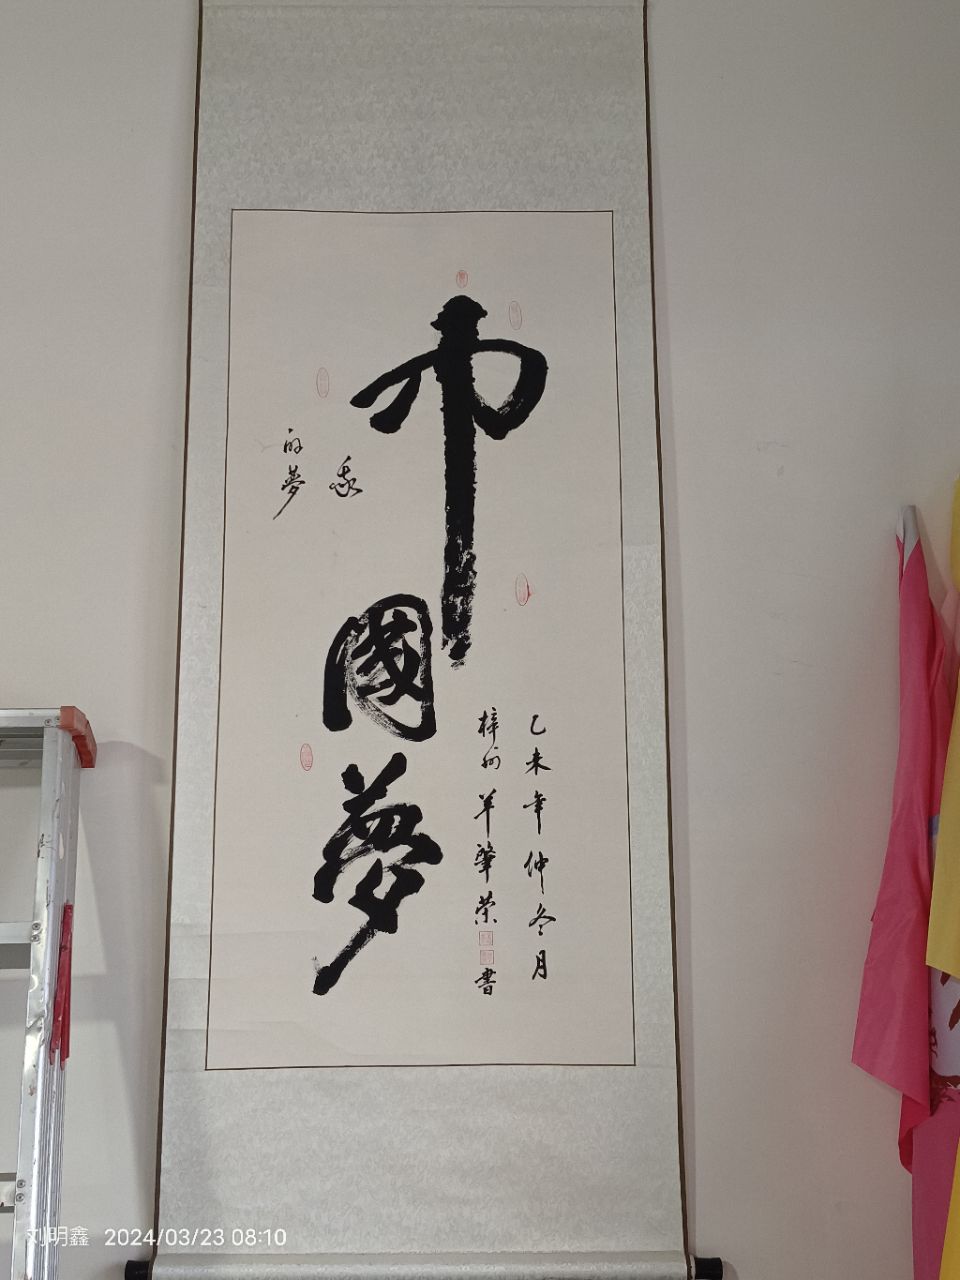 中國夢
我
的夢
乙未年仲冬月
梓州羊肇榮書
刘明鑫 2024/03/23 08:10